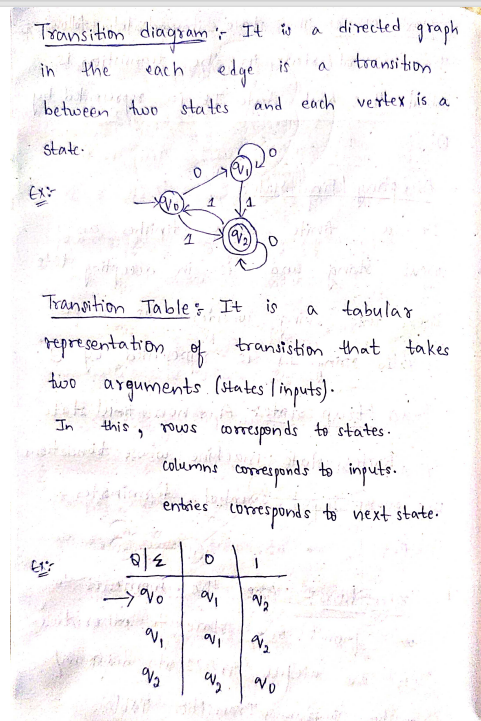 Transition diagram :- It is a directed graph
in the each edge is a transition
between two states and each vertex is a
state.
Ex:-
0
q1
0
q0
1
1
1
q2
0
Transition Table :- It is a tabular
representation of transistion that takes
two arguments (states / inputs).
In this, rows corresponds to states.
columns corresponds to inputs.
entries corresponds to next state.
Ex:-
Q/Σ 0 1
→ q0 q1 q2
q1 q1 q2
q2 q2 q0